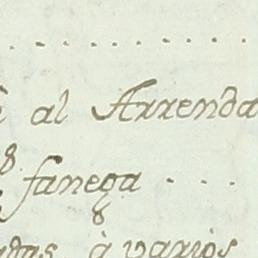 al Arrenda
fanega
à varios